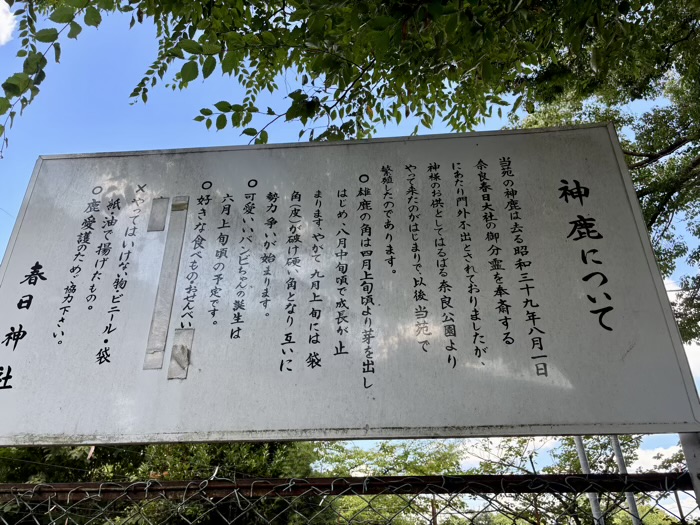 神鹿について
当苑の神鹿は去る昭和三十九年八月一日
奈良春日大社の御分霊を奉斎する
にあたり門外不出とされておりましたが、
神様のお供としてはるばる奈良公園より
やって来たのがはじまりで、以後当苑で
繁殖したのであります。
○雄鹿の角は四月上旬頃より芽を出し
はじめ、八月中旬頃で成長が止
まります。やがて九月上旬には袋
角(皮)が破け硬い角となり互いに
勢力争いが始まります。
○可愛いいバンビちゃんの誕生は
六月上旬頃の予定です。
○好きな食べもの・おせんべい
×やってはいけない物ビニール・袋
紙・油で揚げたもの。
○鹿愛護のためご協力下さい。
春日神社